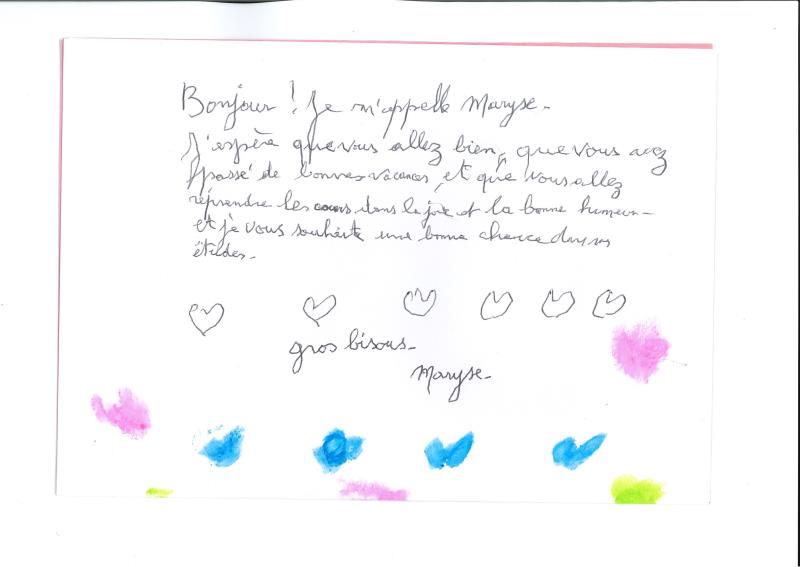 Bonjour ! Je m'appelle Maryse.
J'espère que vous allez bien, que vous avez
passé de bonnes vacances, et que vous allez
réprendre les cours dans la joie et la bonne humeur -
et je vous souhaite une bonne chance dans vos
études.
gros bisous -
Maryse -